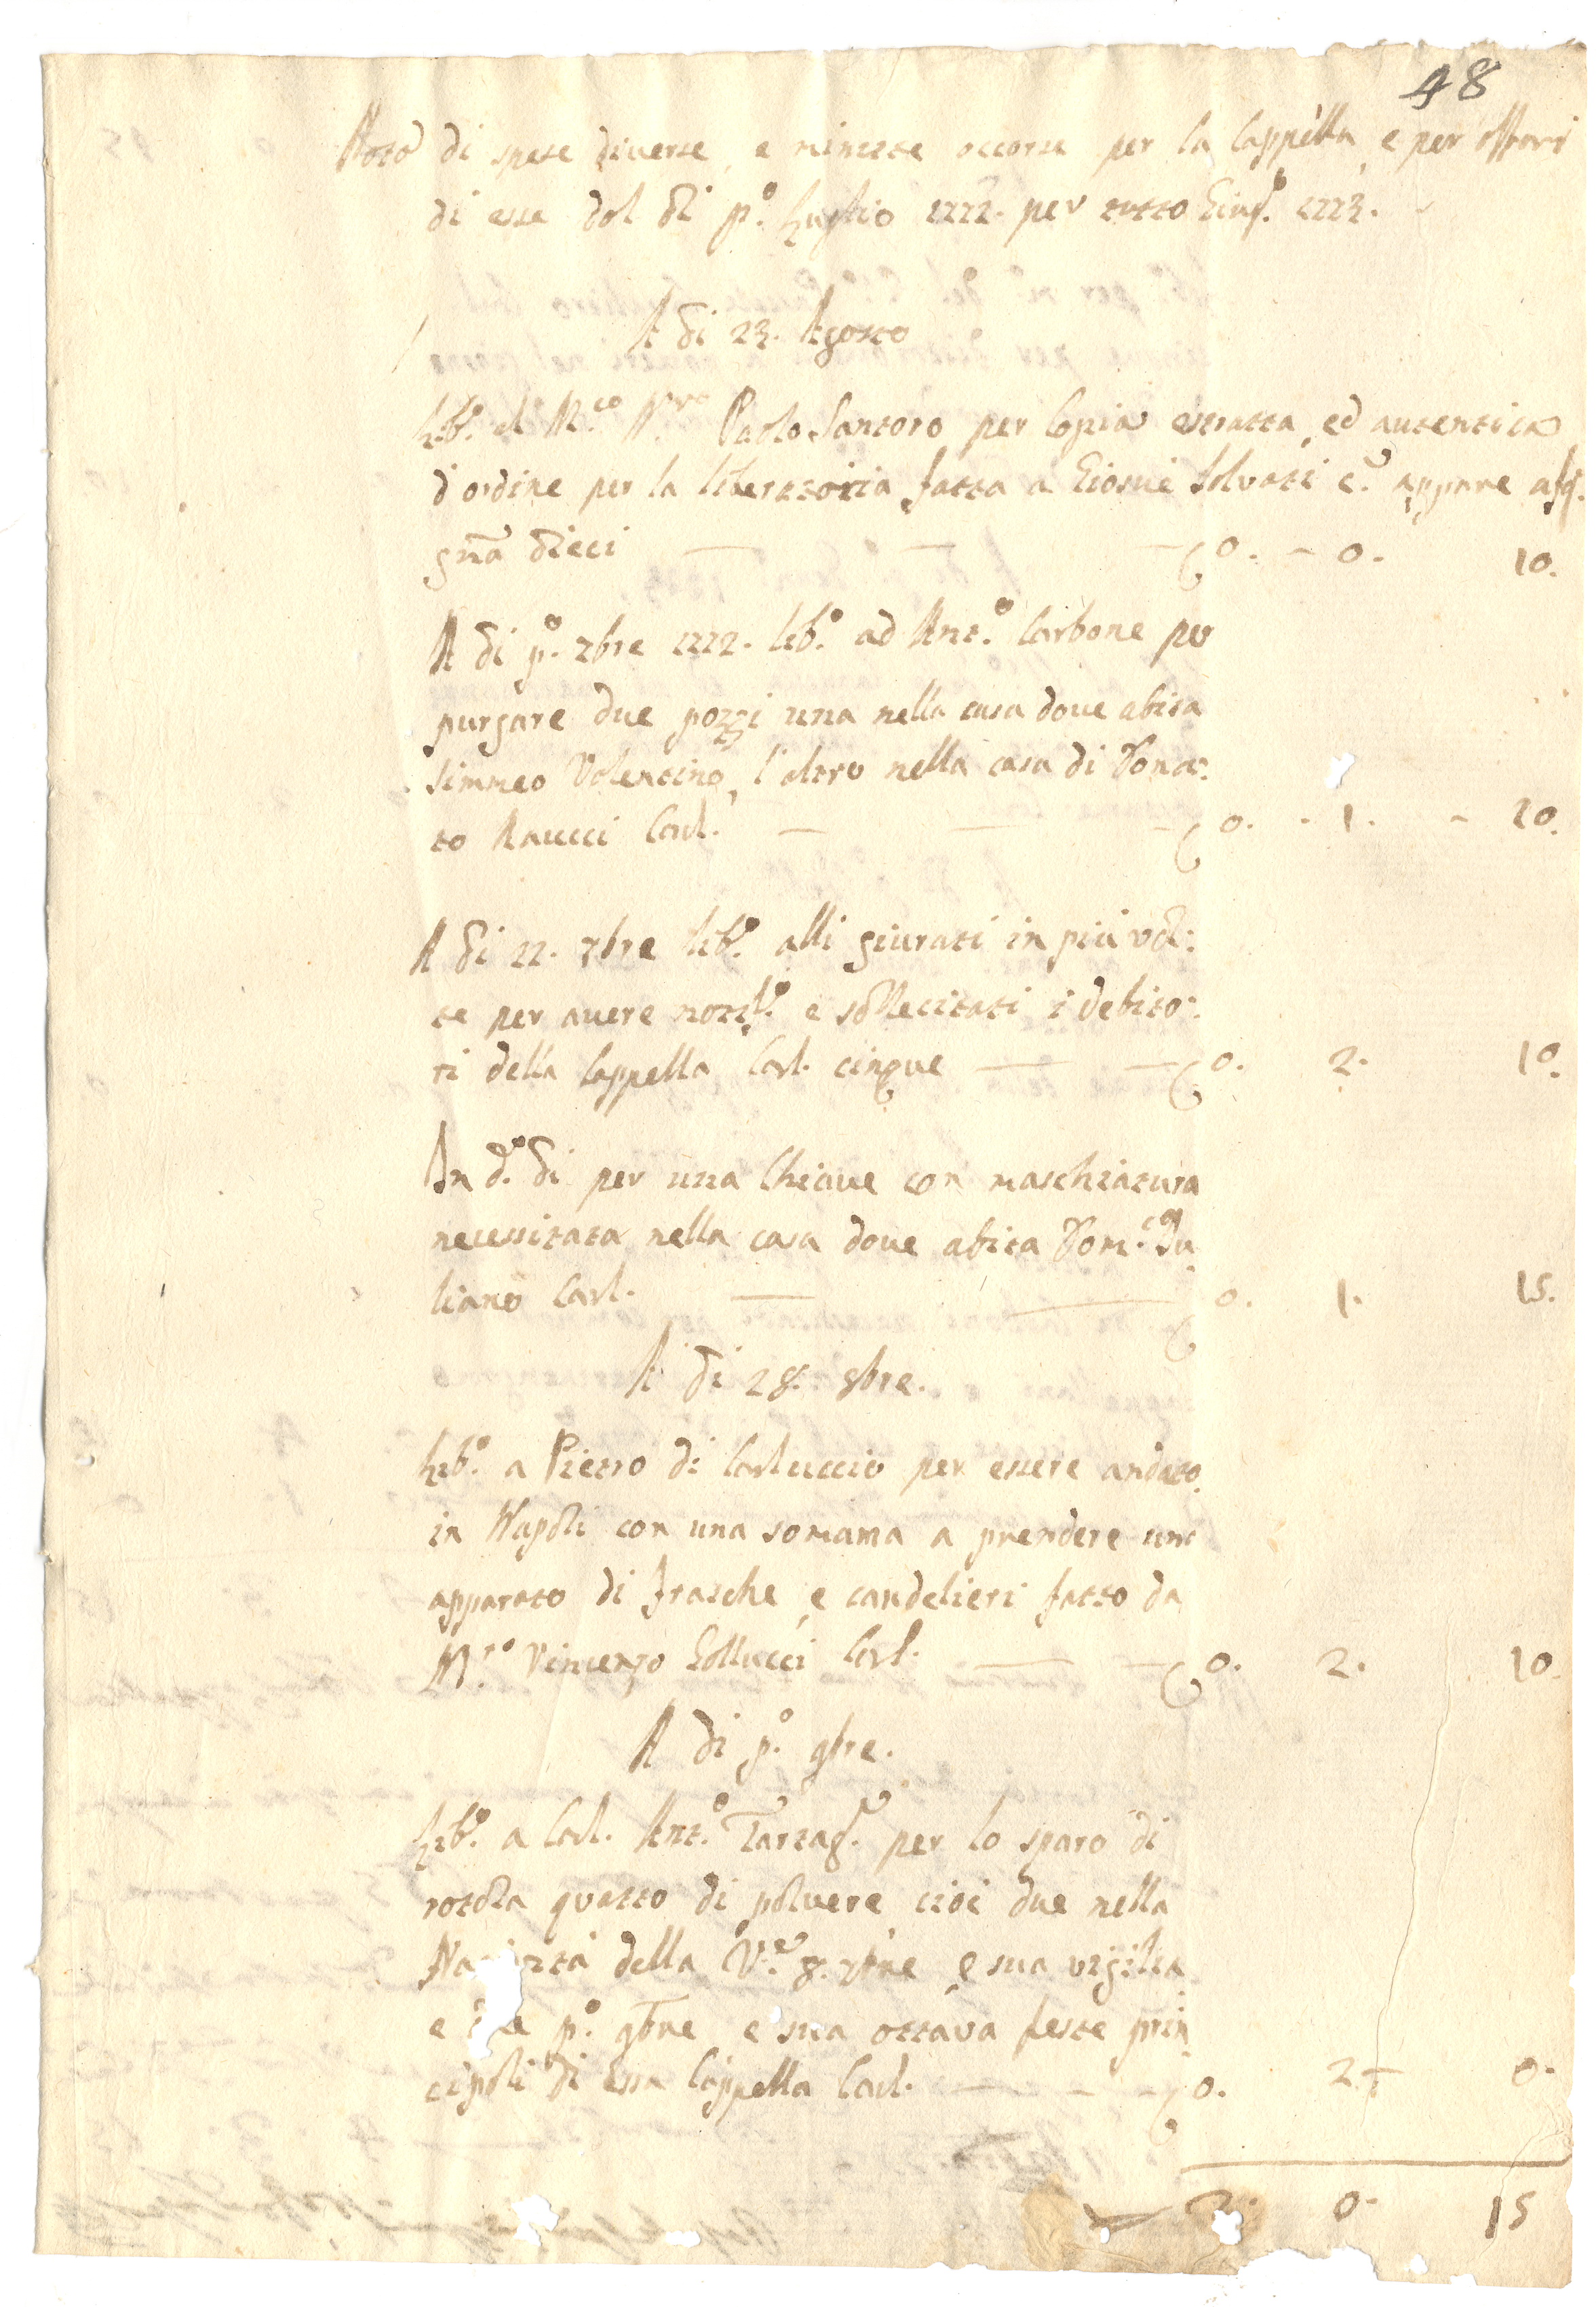 48
Nota di spese diverse, e minute occorse per la Cappella, e per affari
di esse dal di p.º Luglio 1772. per tutto Giug.º 1773.
A di 23. Agosto
Lib.º al M.co N.ro Paolo Santoro per Copia estratta, ed autentica
d'ordine per la liberatoria fatta a Giosuè Salvati c.e appare
gna dieci 0. - 0. 10.
A di p.º 7bre 1772. Lib.º ad Ant.º Carbone per
purgare due pozzi una nella casa dove abita
Simmeo Valentino, l'altro nella casa di Dona:
to Raucci Carl. 0. - 1. - 10.
A di 22. 7bre lib.º alli giurati in più vol:
te per avere notif.º e sollecitati i debito:
ri della Cappella Carl. cinque 0. 2. 10.
In d.º di per una Chiave con maschiatura
necessitata nella casa dove abita Dom.co Iu
liano Carl. 0. 1. 15.
A di 28. 8bre.
Lib.º a Pietro di Carluccio per essere andato
in Napoli con una somama a prendere uno
apparato di frasche, e candelieri fatto da
M.ro Vincenzo Collucci Carl. 0. 2. 10
A di p.º 9bre.
Lib.º a Carl. Ant.º Tartag.e per lo sparo di
rotola quatto di polvere, cioè due nella
Na ità della V.e 8. 7bre, e sua vigilia
e p.º 9bre, e sua ottava feste prin
cipali di essa Cappella Carl. 0. 2. 0.
2. 0. 15